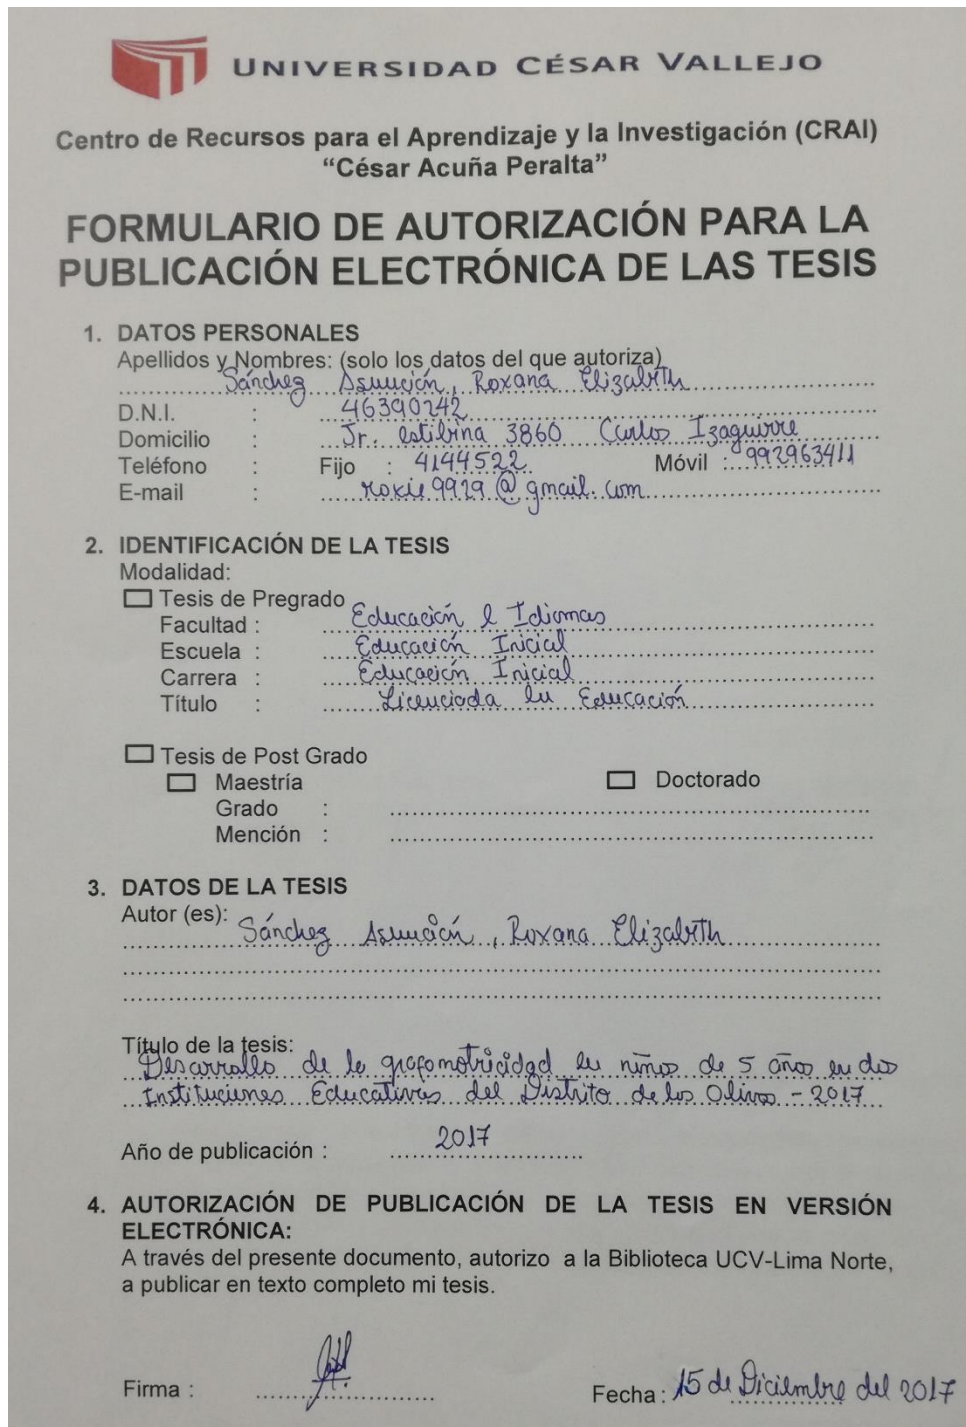 UNIVERSIDAD CÉSAR VALLEJO
Centro de Recursos para el Aprendizaje y la Investigación (CRAI)
“César Acuña Peralta”
FORMULARIO DE AUTORIZACIÓN PARA LA
PUBLICACIÓN ELECTRÓNICA DE LAS TESIS
1. DATOS PERSONALES
Apellidos y Nombres: (solo los datos del que autoriza)
Sánchez Asunción, Roxana Elizabeth
D.N.I. : 46390242
Domicilio : Jr. estibina 3860 Carlos Izaguirre
Teléfono : Fijo : 4144522 Móvil : 992963411
E-mail : roxie9929@gmail.com
2. IDENTIFICACIÓN DE LA TESIS
Modalidad:
Tesis de Pregrado
Facultad : Educación e Idiomas
Escuela : Educación Inicial
Carrera : Educación Inicial
Título : Licenciada en Educación
Tesis de Post Grado
Maestría Doctorado
Grado :
Mención :
3. DATOS DE LA TESIS
Autor (es):
Sánchez Asunción, Roxana Elizabeth
Título de la tesis:
Desarrollo de la grafomotricidad en niños de 5 años en dos
Instituciones Educativas del Distrito de los Olivos - 2017
Año de publicación : 2017
4. AUTORIZACIÓN DE PUBLICACIÓN DE LA TESIS EN VERSIÓN
ELECTRÓNICA:
A través del presente documento, autorizo a la Biblioteca UCV-Lima Norte,
a publicar en texto completo mi tesis.
Firma :
Fecha : 15 de Diciembre del 2017